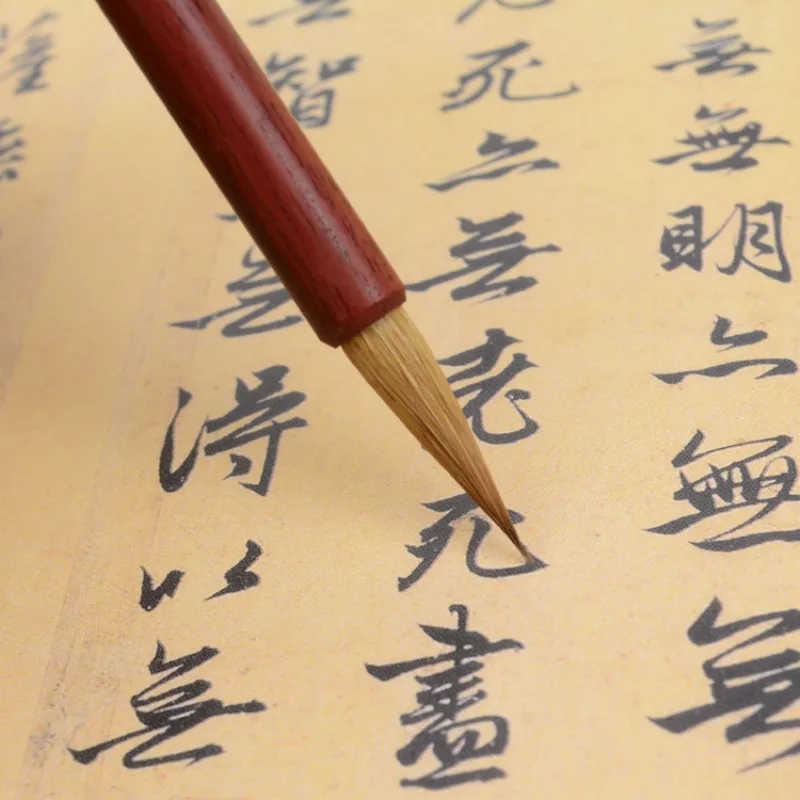 無無明亦無無
死亦無老死盡
智無得以無